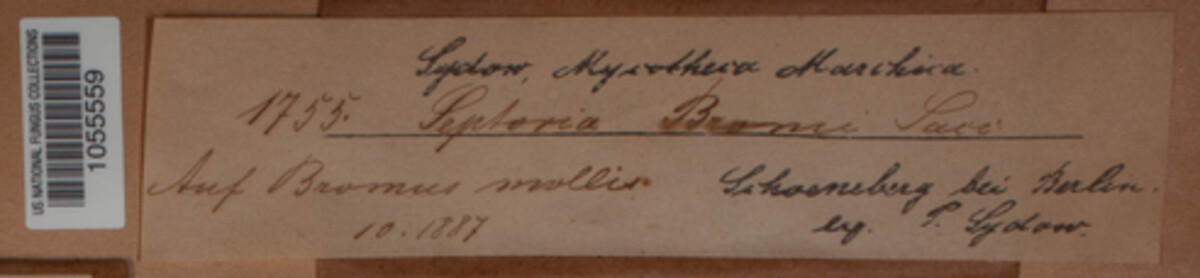 US NATIONAL FUNGUS COLLECTIONS
1055559
Sydow, Mycotheca Marchica.
1755. Septoria Bromi Sacc
Auf Bromus mollis Schoeneberg bei Berlin.
10.1887 leg. P. Sydow.